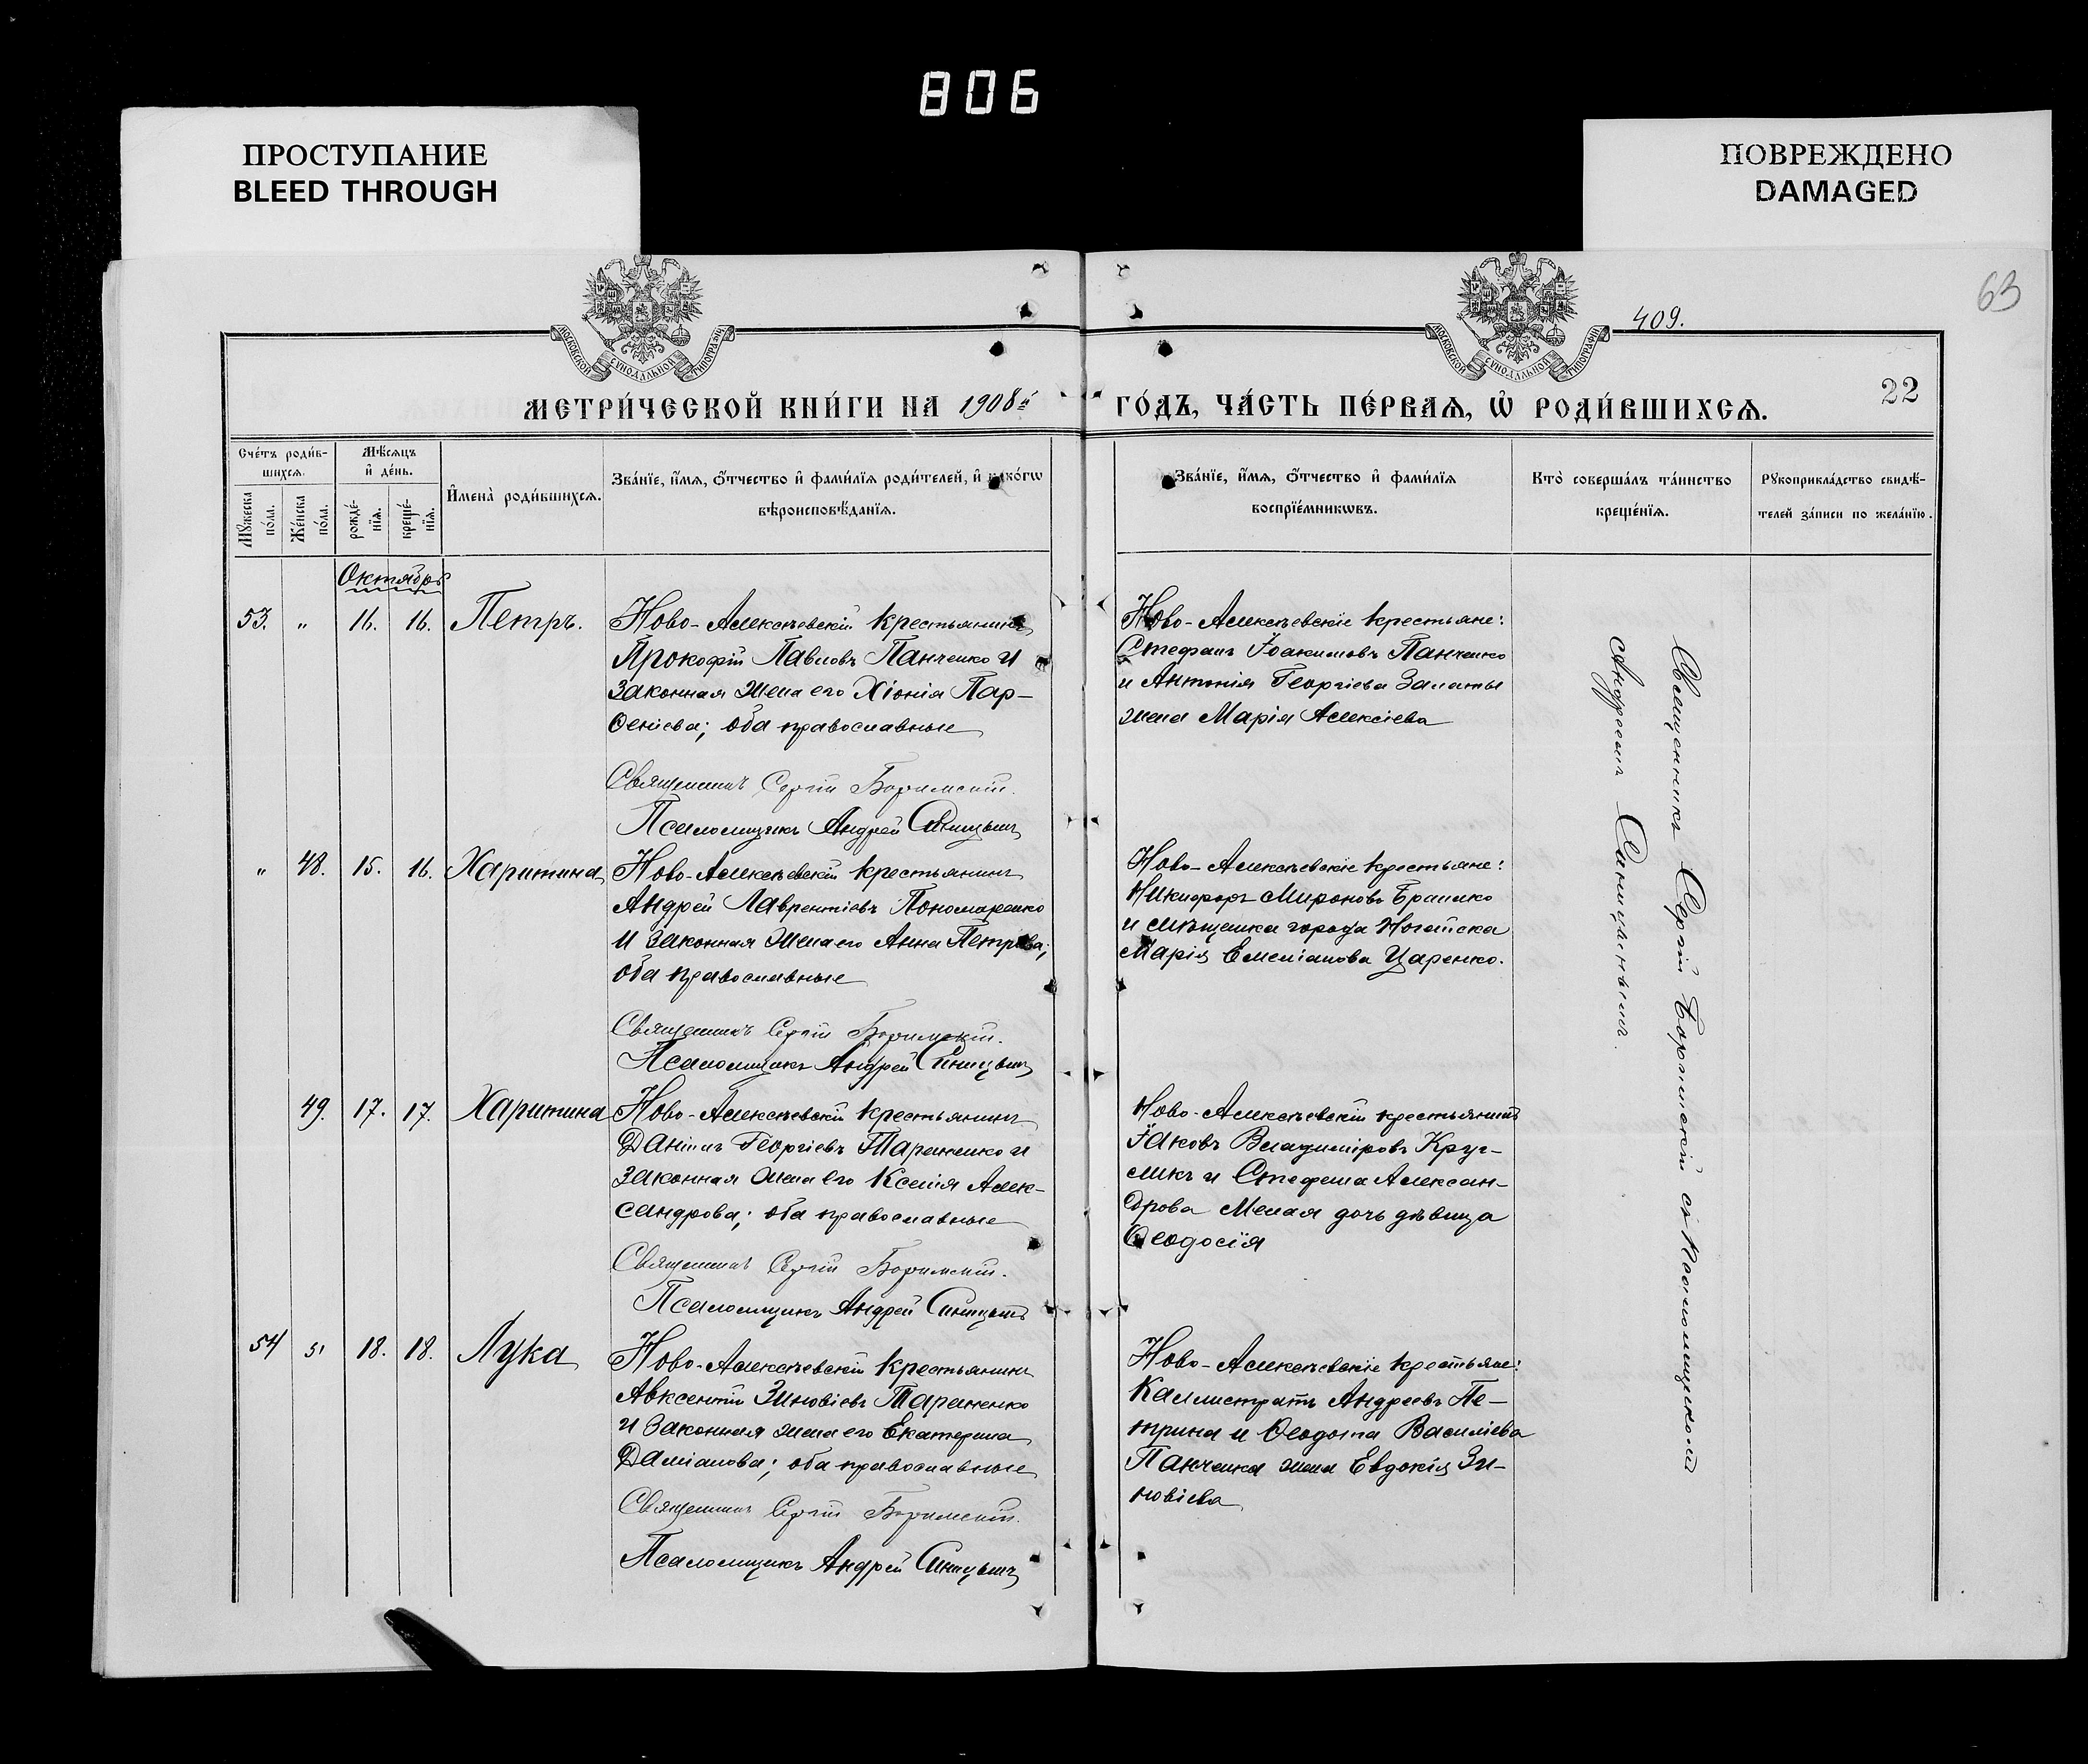 806
ПРОСТУПАНИЕ
BLEED THROUGH
ПОВРЕЖДЕНО
DAMAGED
63
409.
22
МОСКОВСКОЙ СѴНОДАЛЬНОЙ ТИПОГРАФІИ
МОСКОВСКОЙ СѴНОДАЛЬНОЙ ТИПОГРАФІИ
МЕТРИ́ЧЕСКОЙ КНИ́ГИ НА 1908й ГО́ДЪ, ЧА́СТЬ ПЕ́РВАѦ, Ѡ҆ РОДИ́ВШИХСѦ.
Сче́тъ роди́в-
шихсѧ.
Мѣ́сѧцъ
и҆ де́нь.
Мꙋ́жеска
по́ла.
Же́нска
по́ла.
рожде́-
нїѧ.
креще́-
нїѧ.
И҆мена̀ роди́вшихсѧ.
Зва́нїе, и҆́мѧ, ѻ҆́тчество и҆ фами́лїѧ роди́телей, и҆ како́гѡ
вѣроисповѣ́данїѧ.
Зва́нїе, и҆́мѧ, ѻ҆́тчество и҆ фами́лїѧ
воспрїе́мникѡвъ.
Кто̀ соверша́лъ та́инство
креще́нїѧ.
Рꙋкоприкла́дство свидѣ́-
телей за́писи по жела́нїю.
Октябрь
53. " 16. 16. Петръ.
Ново-Алексѣевскій крестьянинъ
Прокофій Павловъ Панченко и
законная жена его Хіонія Пар-
ѳеніева; оба православные
Священникъ Сергій Боримскій.
Псаломщикъ Андрей Синицынъ
Ново-Алексѣевскіе крестьяне:
Стефанъ Іоакимовъ Панченко
и Антонія Георгіева Залаты
жена Марія Алексіева
" 48. 15. 16. Харитина
Ново-Алексѣевскій крестьянинъ
Андрей Лаврентіевъ Пономаренко
и законная жена его Анна Петрова;
оба православные
Священникъ Сергій Боримскій.
Псаломщикъ Андрей Синицынъ
Ново-Алексѣевскіе крестьяне:
Никифоръ Мироновъ
и мѣщанка города Ногайска
Марія Емеліанова Царенко.
49. 17. 17. Харитина
Ново-Алексѣевскій крестьянинъ
Даніилъ Георгіевъ Тараненко и
законная жена его Ксенія Алек-
сандрова; оба православные
Священникъ Сергій Боримскій.
Псаломщикъ Андрей Синицынъ
Ново-Алексѣевскій крестьянинъ
Іаковъ Владиміровъ Круг-
ликъ и Стефана Алексан-
дрова дочь дѣвица
Ѳеодосія
54 18. 18. Лука
Ново-Алексѣевскій крестьянинъ
Авксентій Зиновіевъ Тараненко
и законная жена его Екатерина
Даміанова; оба православные
Священникъ Сергій Боримскій.
Псаломщикъ Андрей Синицынъ
Ново-Алексѣевскіе крестьяне:
Каллистратъ Андреевъ Пе-
трина и Ѳеодота Василіева
Панченка жена Евдокія Зи-
новіева
Священникъ Сергій Боримскій съ псаломщикомъ
Андреемъ Синицынымъ.